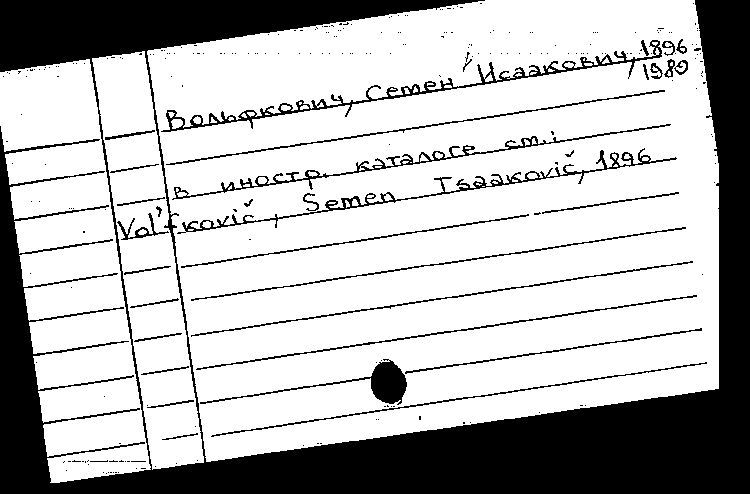 Вольфкович, Семен Исаакович, 1896-
1980
в иностр. каталоге ст.:
Vol'fkovič, Semen Isaakovič, 1896